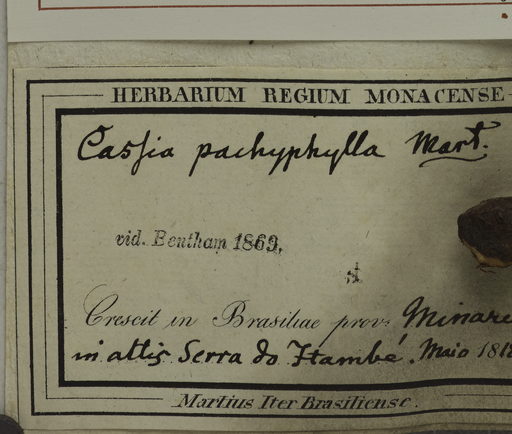 HERBARIUM REGIUM MONACENSE
Cassia pachyphylla Mart.
vid. Bentham 1869.
Crescit in Brasiliae prov: Minare
in altis Serra do Itambé. Maio 1818
Martius Iter Brasiliense.